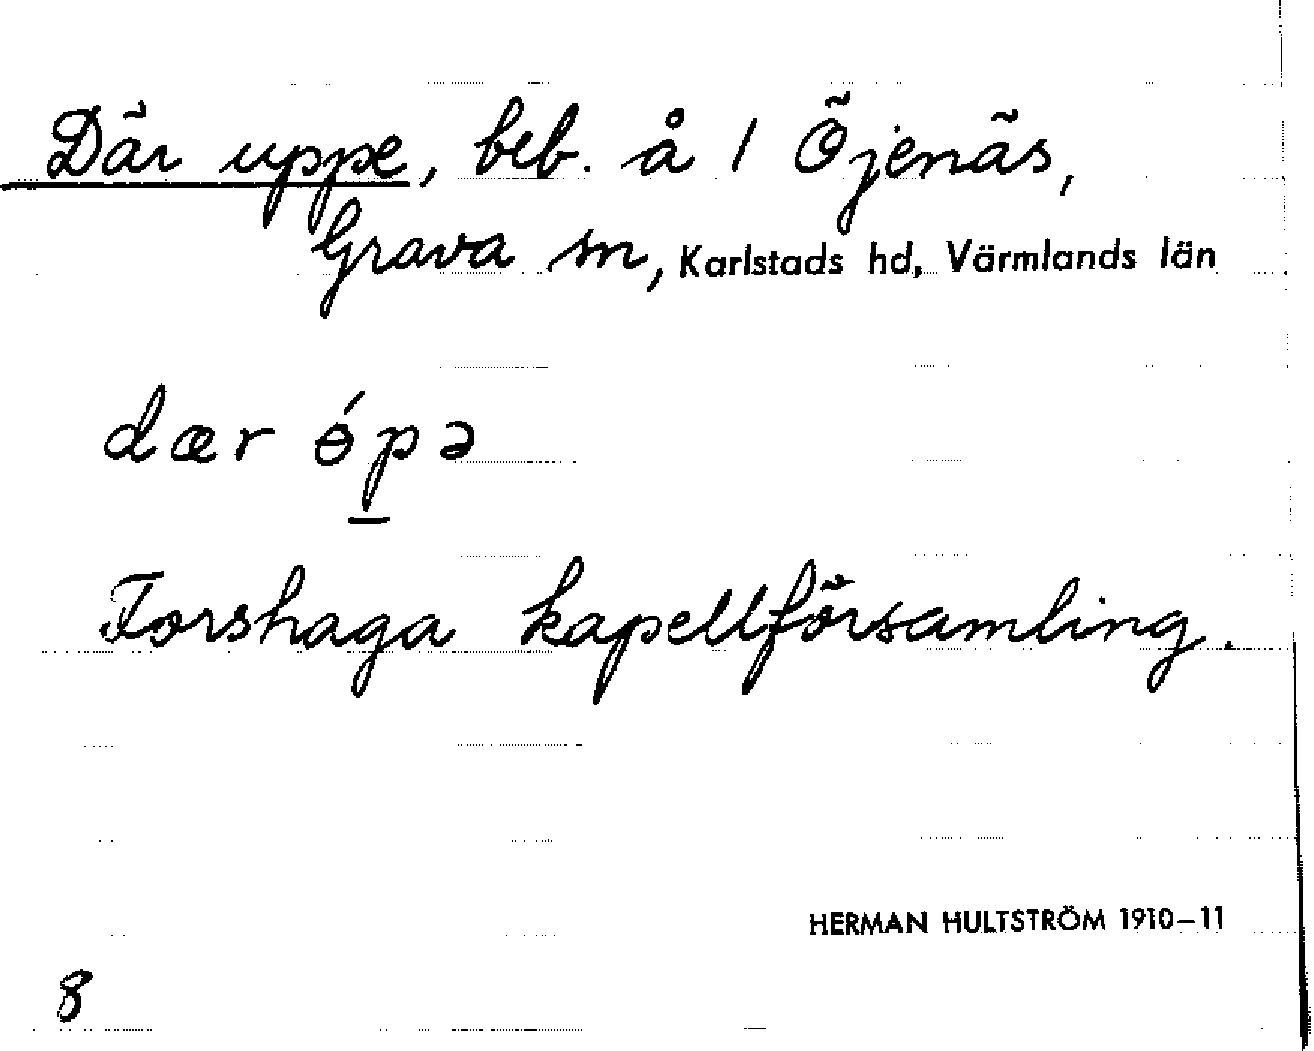 Där uppe, beb. å 1 Öjenäs,
Grava sn, Karlstads hd, Värmlands län
dær ɵ́pə
Forshaga kapellförsamling.
HERMAN HULTSTRÖM 1910–11
8